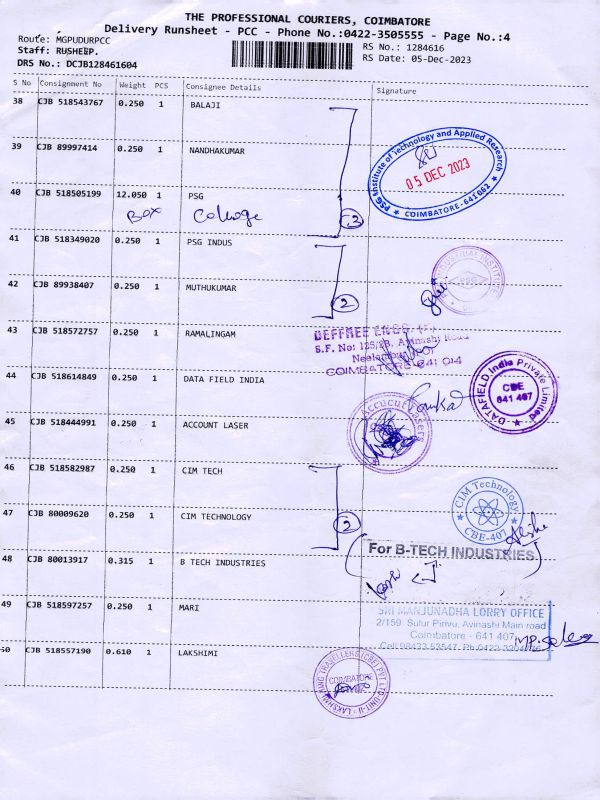 THE PROFESSIONAL COURIERS, COIMBATORE
Delivery Runsheet - PCC - Phone No.:0422-3505555 - Page No.:4
Route: MGPUDURPCC
RS No.: 1284616
Staff: RUSHEEP.
RS Date: 05-Dec-2023
DRS No.: DCJB128461604
S No Consignment No Weight PCS Consignee Details Signature
38 CJB 518543767 0.250 1 BALAJI
39 CJB 89997414 0.250 1 NANDHAKUMAR
PSG Institute of Technology and Applied Research
05 DEC 2023
COIMBATORE-641062
40 CJB 518505199 12.050 1 PSG
Box College
3
41 CJB 518349020 0.250 1 PSG INDUS
INDUSTRIAL INSTITUTE
42 CJB 89938407 0.250 1 MUTHUKUMAR
2
43 CJB 518572757 0.250 1 RAMALINGAM
S.F. No: 125/2B, Avinashi Road
Neelambur (PO)
COIMBATORE-641 0
44 CJB 518614849 0.250 1 DATA FIELD INDIA
DATAFIELD India Private Limited
CBE
641 407
45 CJB 518444991 0.250 1 ACCOUNT LASER
46 CJB 518582987 0.250 1 CIM TECH
CIM Technology
CBE-407
47 CJB 80009620 0.250 1 CIM TECHNOLOGY
2
For B-TECH INDUSTRIES
48 CJB 80013917 0.315 1 B TECH INDUSTRIES
49 CJB 518597257 0.250 1 MARI
SRI MANJUNADHA LORRY OFFICE
2/159, Sulur Pirivu, Avinashi Main road
Coimbatore - 641 407
Cell:98433 53547, Ph:0422-
50 CJB 518557190 0.610 1 LAKSHIMI
COIMBATORE